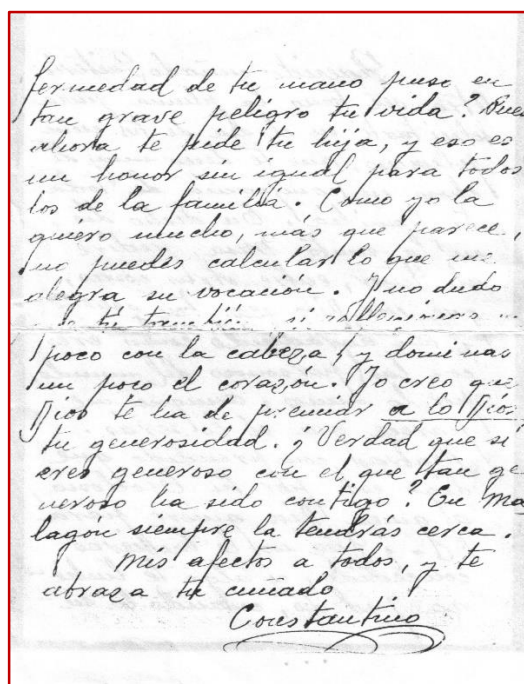 fermedad de tu mano puso en
tan grave peligro tu vida? Pues
ahora te pide tu hija, y eso es
un honor sin igual para todos
los de la familia. Como yo la
quiero mucho, más que parece,
no puedes calcular lo que me
alegra su vocación. Y no dudo
tú también, si
poco con la cabeza, y dominas
un poco el corazón. Yo creo que
Dios te ha de premiar a lo Dios
tu generosidad. ¿Verdad que sí
eres generoso con el que tan ge
neroso ha sido contigo? En Ma
lagón siempre la tendrás cerca.
Mis afectos a todos, y te
abraza tu cuñado
Constantino